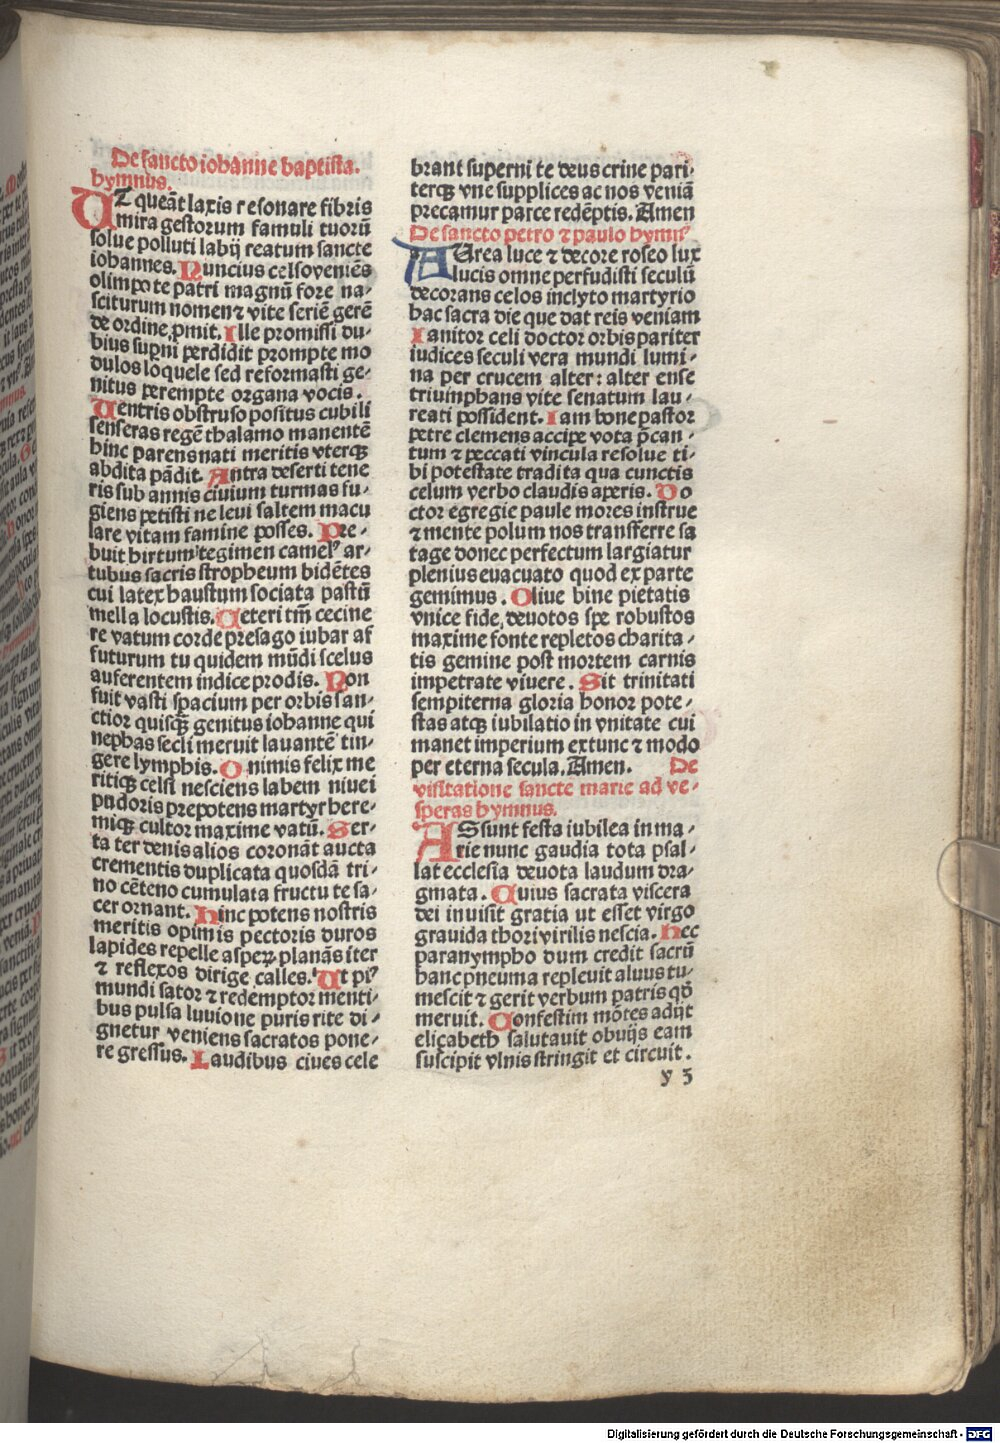 De sancto iohanne baptista.
hymnus.
UT queāt laxis resonare fibris
mira gestorum famuli tuorū
solue polluti labij reatum sancte
iohannes. Nuncius celso veniēs
olimpo te patri magnū fore na-
sciturum nomen ⁊ vite seriē gerē
de ordine ꝓmit. Ille promissi du-
bius suꝑni perdidit prompte mo
dulos loquele sed reformasti ge-
nitus perempte organa vocis.
Uentris obstruso positus cubili
senseras regē thalamo manentē
hinc parens nati meritis vterqꝫ
abdita pādit. Antra deserti tene
ris sub annis ciuium turmas fu-
giens petisti ne leui saltem macu
lare vitam famine posses. Pre-
buit hirtum tegimen camelꝰ ar-
tubus sacris stropheum bidētes
cui latex haustum sociata pastū
mella locustis. Ceteri tm̄ cecine
re vatum corde presago iubar af
futurum tu quidem mūdi scelus
auferentem indice prodis. Non
fuit vasti spacium per orbis san-
ctior quisqꝫ̄ genitus iohanne qui
nephas secli meruit lauantē tin-
gere lymphis. O nimis felix me
ritiqꝫ celsi nesciens labem niuei
pudoris prepotens martyr here-
miqꝫ cultor maxime vatū. Ser-
ta ter denis alios coronāt aucta
crementis duplicata quosdā tri-
no cēteno cumulata fructu te sa-
cer ornant. Hinc potens nostris
meritis opimis pectoris duros
lapides repelle asperꝝ planās iter
⁊ reflexos dirige calles. Ut piꝰ
mundi sator ⁊ redemptor menti-
bus pulsa luuione puris rite di-
gnetur veniens sacratos pone-
re gressus. Laudibus ciues cele
brant superni te deus crine pari-
terqꝫ vne supplices ac nos veniā
precamur parce redēptis. Amen
De sancto petro ⁊ paulo hymnꝰ
AUrea luce ⁊ decore roseo lux
lucis omne perfudisti seculū
decorans celos inclyto martyrio
hac sacra die que dat reis veniam
Ianitor celi doctor orbis pariter
iudices seculi vera mundi lumi-
na per crucem alter: alter ense
triumphans vite senatum lau-
reati possident. Iam bone pastor
petre clemens accipe vota p̄can-
tum ⁊ peccati vincula resolue ti-
bi potestate tradita qua cunctis
celum verbo claudis aperis. Do
ctor egregie paule mores instrue
⁊ mente polum nos transferre sa
tage donec perfectum largiatur
plenius euacuato quod ex parte
gemimus. Oliue bine pietatis
vnice fide, deuotos spe robustos
maxime fonte repletos charita-
tis gemine post mortem carnis
impetrate viuere. Sit trinitati
sempiterna gloria honor pote-
stas atqꝫ iubilatio in vnitate cui
manet imperium extunc ⁊ modo
per eterna secula. Amen. De
visitatione sancte marie ad ve-
speras hymnus.
ASsunt festa iubilea in ma-
rie nunc gaudia tota psal-
lat ecclesia deuota laudum dra-
gmata. Cuius sacrata viscera
dei inuisit gratia ut esset virgo
grauida thori virilis nescia. Hec
paranympho dum credit sacrū
hanc pneuma repleuit aluus tu-
mescit ⁊ gerit verbum patris qð
meruit. Confestim mōtes adijt
elizabeth salutauit obuijs eam
suscipit vlnis stringit et circuit.
y 3
Digitalisierung gefördert durch die Deutsche Forschungsgemeinschaft - DFG